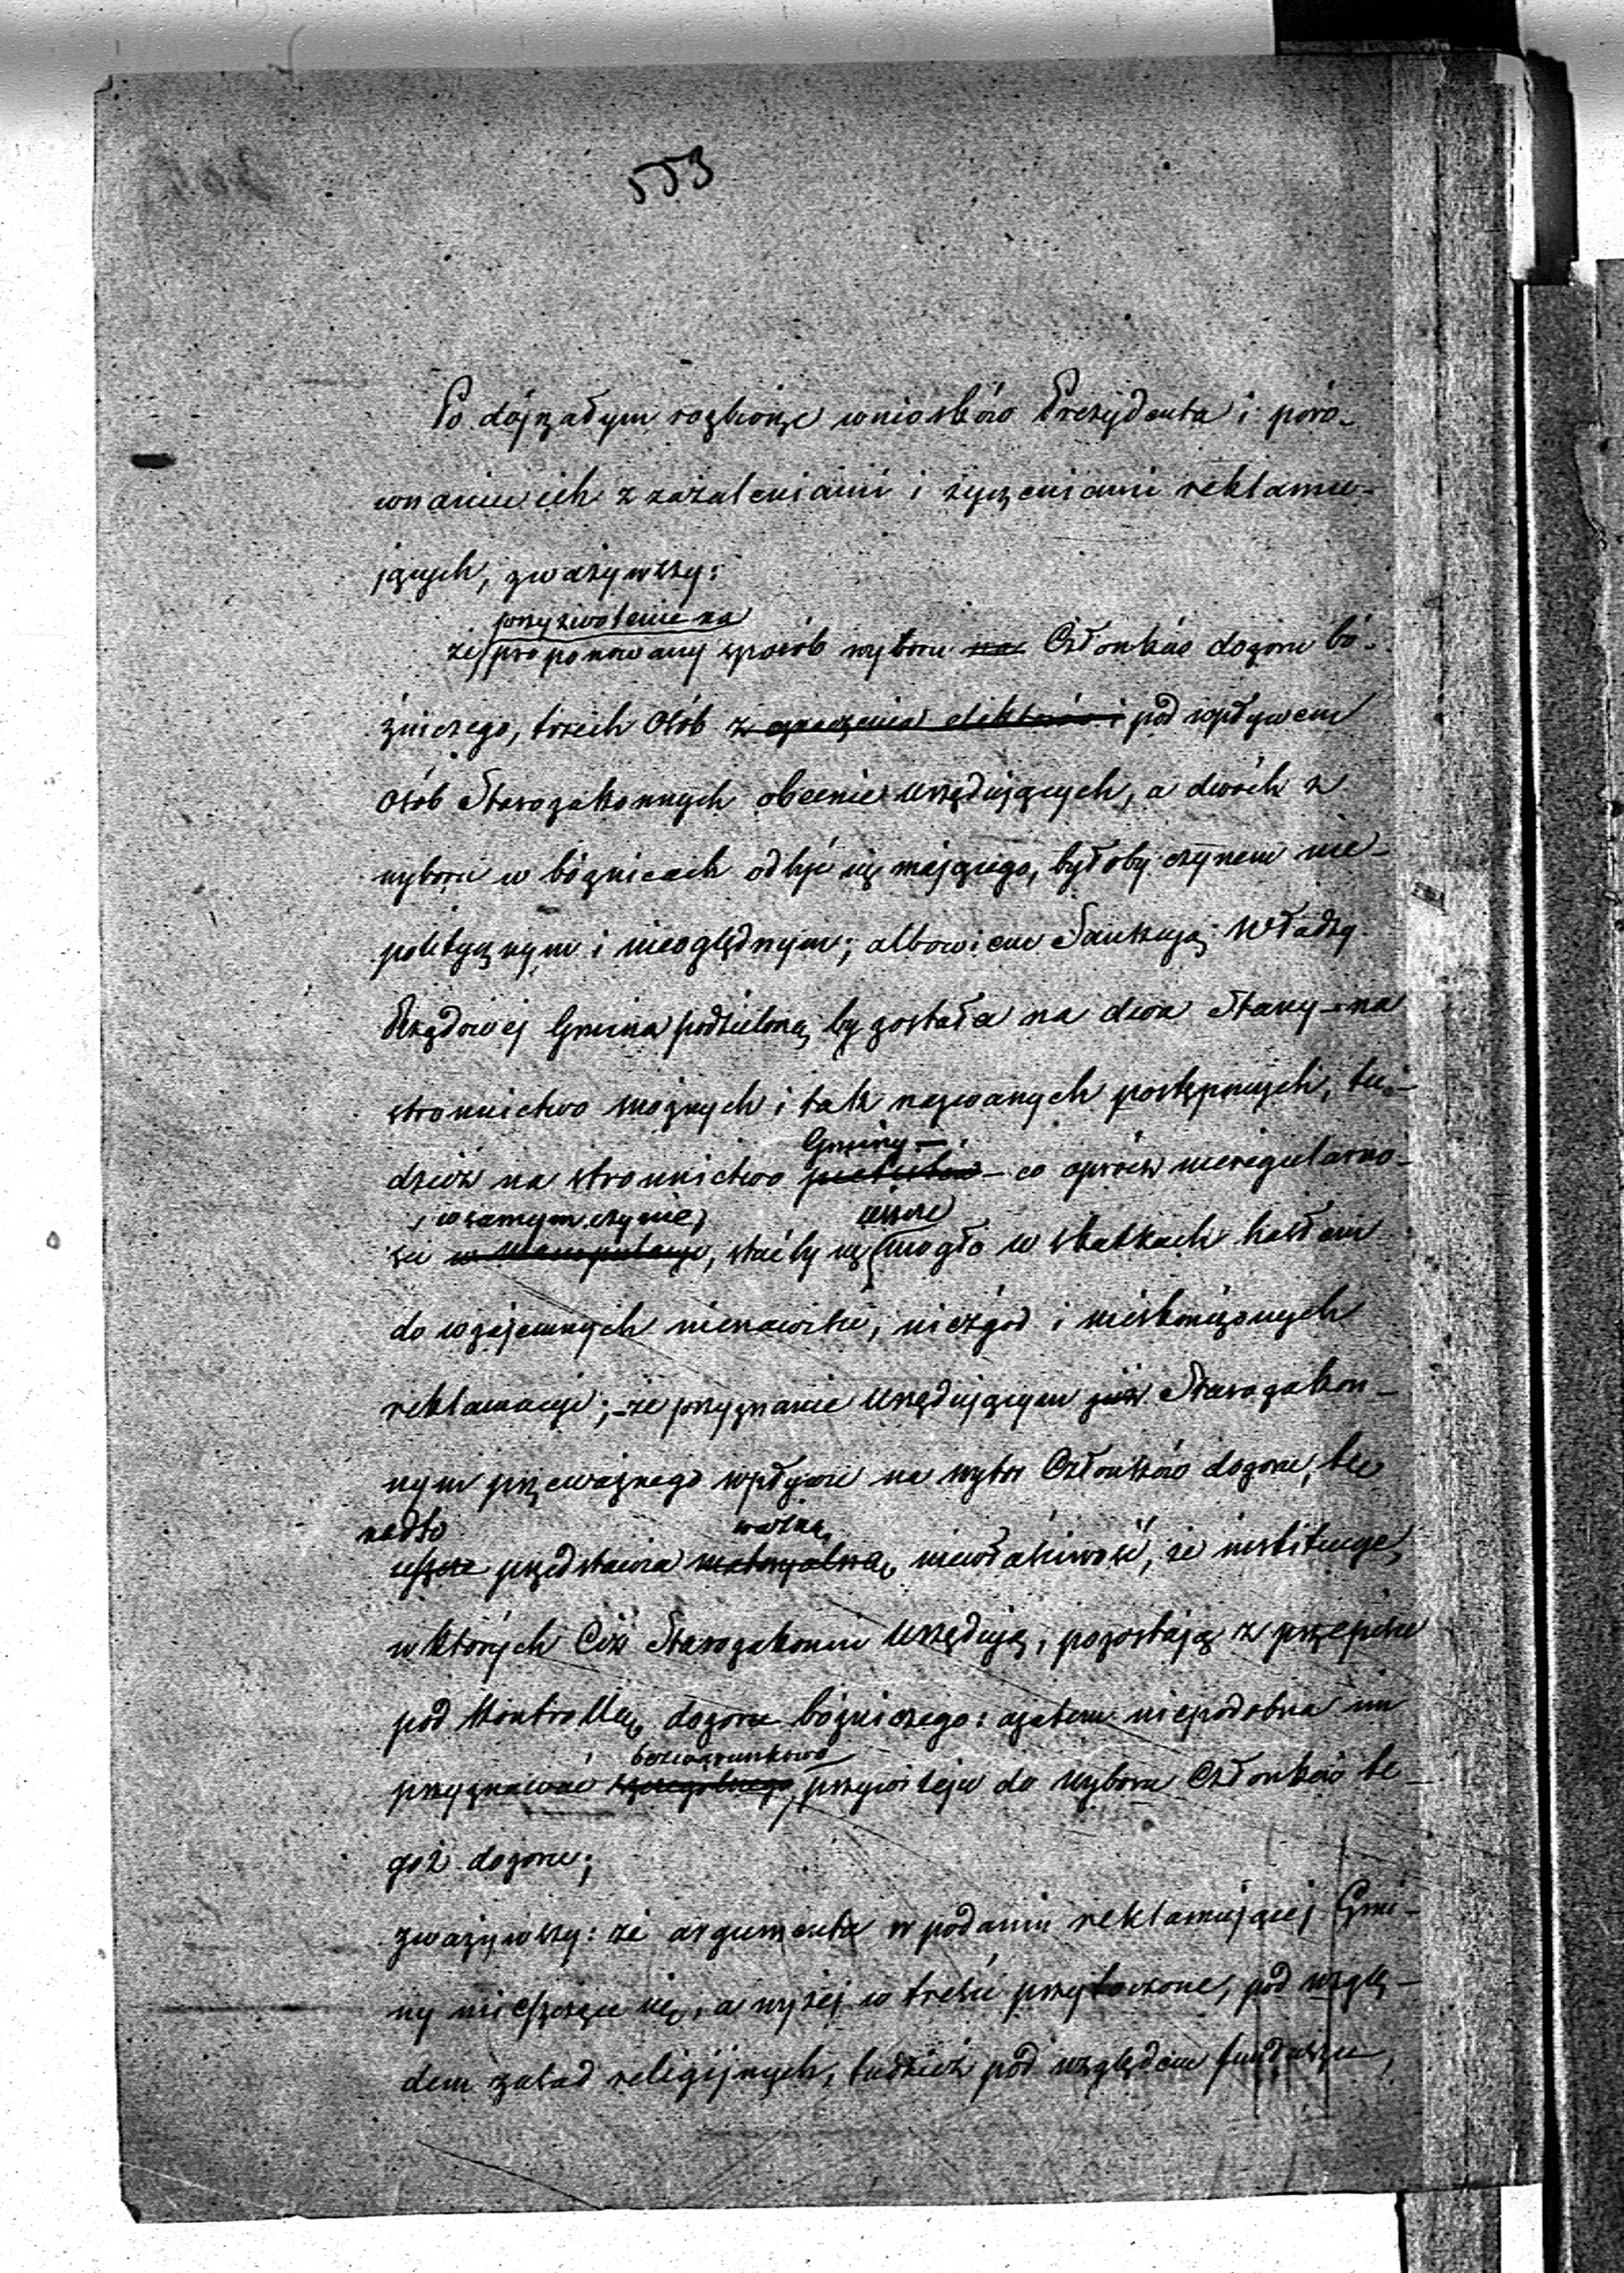 553
Po dójrzałym rozbiorze wniosków Prezydenta i poró-
wnaniu ich z zażaleniami i życzeniami reklamu-
jących, zważywszy:
przyzwolenie na
że proponowany sposób wyboru na Członków dozoru bó-
źniczego, trzech Osób z grona elektorów i pod wpływem
Osób Starozakonnych obecnie urzędujących, a dwóch z
wyboru w bóznicach odbyć się mającego, byłoby czynem nie-
politycznym i nieoględnym; albowiem Sankcyą Władzy
Rządowej Gmina podzieloną by została na dwa Stany – na
stronnictwo możnych i tak nazwanych postępowych, tu-
Gminy –
dzież na stronnictwo – co oprócz nieregularno-
, w samym czynie, jeszcze
ści w Manipulacyi, stać by się mogło w skutkach hasłem
do wzajemnych nienawiści, niezgód i nieskończonych
reklamacyi; – że przyznanie Urzędującym już Starozakon-
nym przeważnego wpływu na wybór Członków dozoru, tę
nadto ważną
jeszcze przedstawia materyalną niewłaściwość, że instytucye,
w których Ciż Starozakonni Urzędują, pozostają z przepisu
pod Kontrollą dozoru bózniczego: azatem niepodobna im
bezwarunkowo
przyznawać szczególnego przywileju do wyboru Członków te-
goż dozoru;
zważywszy: że argumenta w podaniu reklamującej Gmi-
ny mieszczące się, a wyżej w treści przytoczone, pod wzglę-
dem zasad religijnych, tudzież pod względem funduszu,